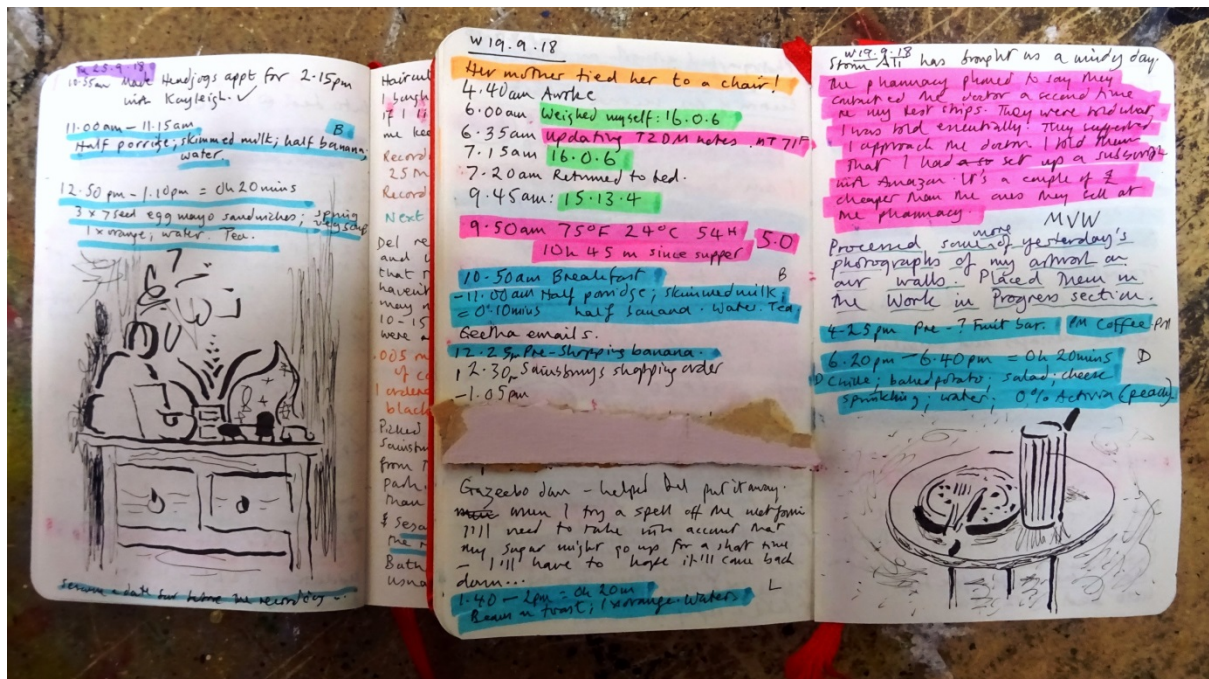 Tu 25.9.18
10.35am Made Headjogs appt for 2.15pm
with Kayleigh. ✓
11.00am – 11.15am
B
Half porridge; skimmed milk; half banana;
water.
12.50pm – 1.10pm = 0h 20mins
3 x 7 seed egg mayo sandwiches; spring
veg soup
1 x orange; water. Tea.
Haircut
I bough
if I
me kee
Record
25 m
Record
Next
Del re
and
that
haven't
may n
10-15
were a
.005 m
of co
I ordere
black
Picked
Sainsbu
from T
park.
than
& Sesa
the
Bath
usua
W 19.9.18
Her mother tied her to a chair!
4.40am Awoke
6.00am Weighed myself: 16.0.6
6.35am Updating T2DM notes. nT 71F
7.15am 16.0.6
7.20am Returned to bed.
9.45am: 15.13.4
9.50am 75°F 24°C 54H
10h 45m since supper
5.0
10.50am Breakfast
B
–11.00am Half porridge; skimmed milk;
= 0h 10mins half banana. Water. Tea.
Geetha emails.
12.25p Pre-shopping banana.
12.30p Sainsburys shopping order
–1.05pm
Gazeebo down – helped Del put it away.
When I try a spell off the metformin
I'll need to take into account that
my sugar might go up for a short time
– I'll have to hope it'll come back
down...
1.40 – 2pm = 0h 20m
L
Beans n toast; 1 x orange. Water.
W 19.9.18
Storm Ali has brought us a windy day.
The pharmacy phoned to say they
contacted the doctor a second time
re my test strips. They were told what
I was told essentially. They suggested
I approach the doctor. I told them
that I had set up a subscript
with Amazon. It's a couple of £
cheaper than the ones they sell at
the pharmacy.
MVW
more
Processed some of yesterday's
photographs of my artwork on
our walls. Placed them in
the Work in Progress section.
4.25pm Pre-? Fruit bar. PM Coffee PM
6.20pm – 6.40pm = 0h 20mins
D
D Chilli; baked potato; salad; cheese
sprinkling; water; 0% Activia (peach)